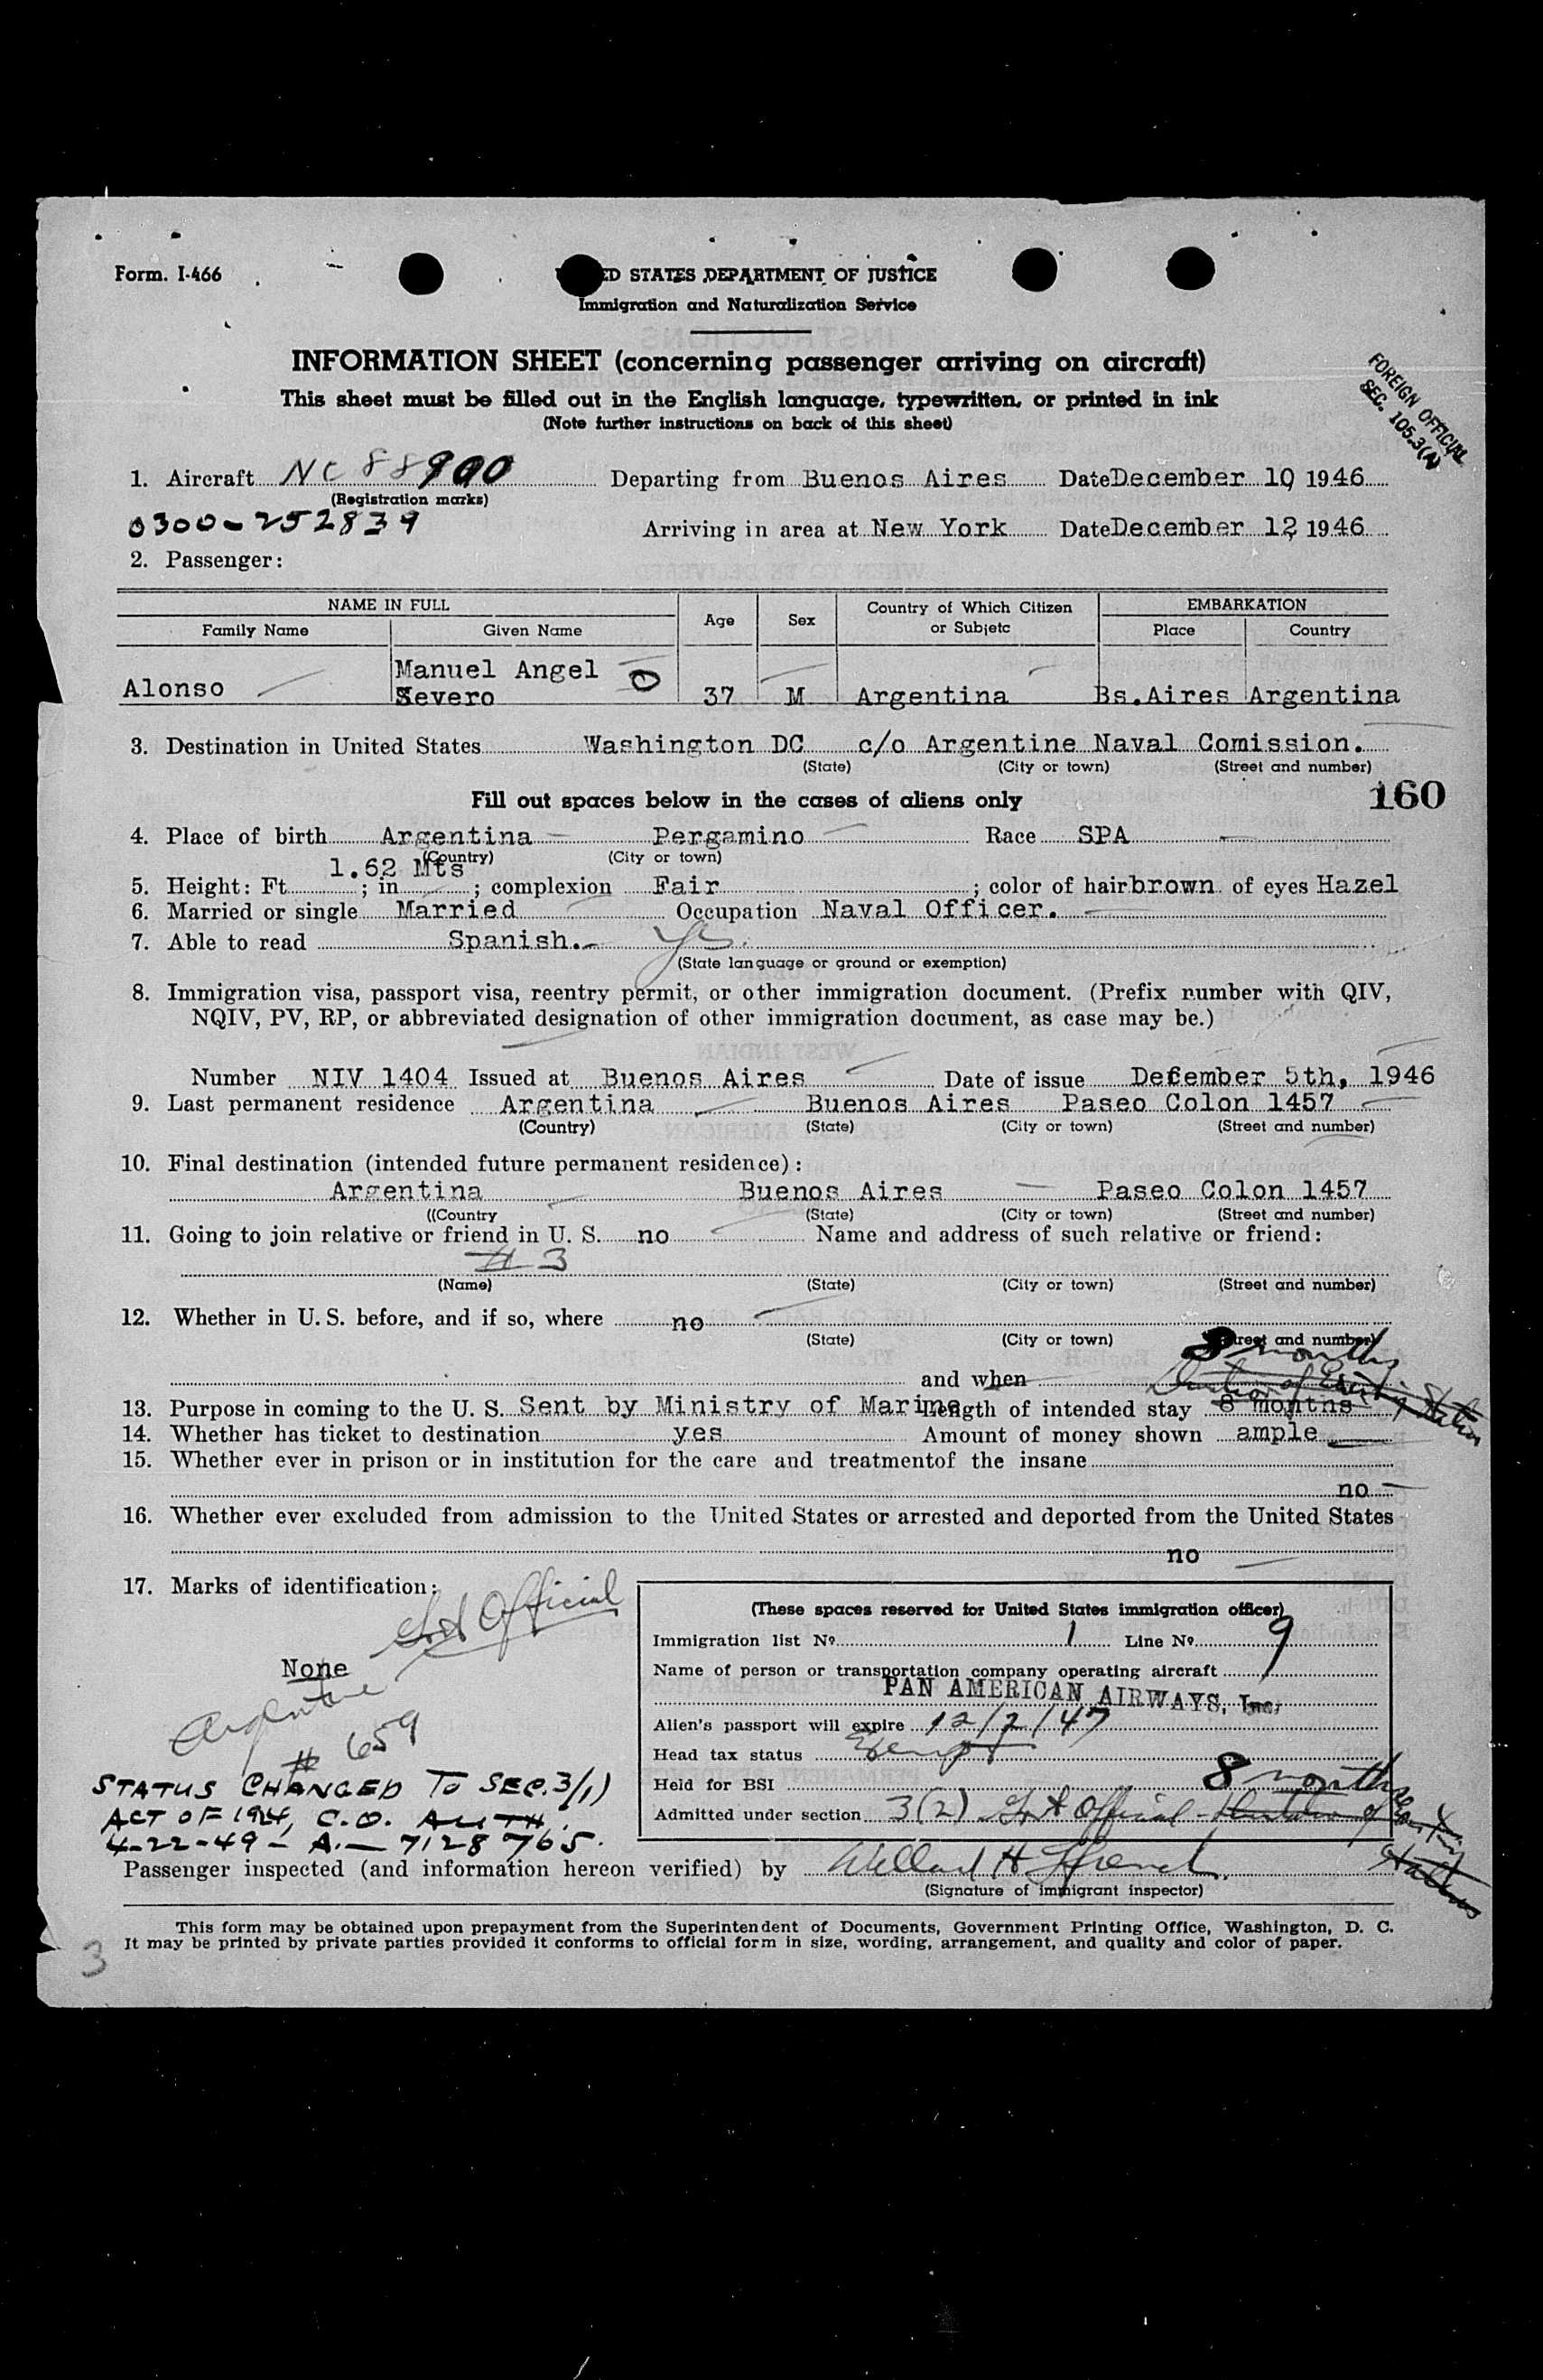 Form. I-466
ED STATES DEPARTMENT OF JUSTICE
Immigration and Naturalization Service
INFORMATION SHEET (concerning passenger arriving on aircraft)
This sheet must be filled out in the English language, typewritten, or printed in ink
(Note further instructions on back of this sheet)
FOREIGN OFFICIAL
SEC. 105.3(A)
1. Aircraft NC 88900 Departing from Buenos Aires Date December 10 1946
(Registration marks)
0300-252839 Arriving in area at New York Date December 12 1946
2. Passenger:
NAME IN FULL Age Sex Country of Which Citizen or Subjetc EMBARKATION
Family Name Given Name Place Country
Alonso Manuel Angel Severo 37 M Argentina Bs.Aires Argentina
3. Destination in United States Washington DC c/o Argentine Naval Comission.
(State) (City or town) (Street and number)
Fill out spaces below in the cases of aliens only 160
4. Place of birth Argentina Pergamino Race SPA
(Country) (City or town)
1.62 Mts
5. Height: Ft ; in ; complexion Fair ; color of hair brown of eyes Hazel
6. Married or single Married Occupation Naval Officer.
7. Able to read Spanish.- yes
(State language or ground or exemption)
8. Immigration visa, passport visa, reentry permit, or other immigration document. (Prefix number with QIV,
NQIV, PV, RP, or abbreviated designation of other immigration document, as case may be.)
Number NIV 1404 Issued at Buenos Aires Date of issue December 5th, 1946
9. Last permanent residence Argentina Buenos Aires Paseo Colon 1457
(Country) (State) (City or town) (Street and number)
10. Final destination (intended future permanent residence):
Argentina Buenos Aires Paseo Colon 1457
((Country (State) (City or town) (Street and number)
11. Going to join relative or friend in U. S. no Name and address of such relative or friend:
# 3
(Name) (State) (City or town) (Street and number)
12. Whether in U. S. before, and if so, where no
(State) (City or town) (Street and number)
8 months
and when Duration of
13. Purpose in coming to the U. S. Sent by Ministry of Marine Length of intended stay 8 months
14. Whether has ticket to destination yes Amount of money shown ample
15. Whether ever in prison or in institution for the care and treatmentof the insane
no
16. Whether ever excluded from admission to the United States or arrested and deported from the United States
no
17. Marks of identification:
Gov't Official
None
Argentine
# 659
STATUS CHANGED TO SEC. 3(1)
ACT OF 1924, C.O. AUTH.
4-22-49 - A-7128765.
(These spaces reserved for United States immigration officer)
Immigration list No 1 Line No 9
Name of person or transportation company operating aircraft
PAN AMERICAN AIRWAYS, Inc.
Alien's passport will expire 12/2/47
Head tax status Exempt
Held for BSI 8 months
Admitted under section 3(2) Gov't Official - Duration of
Status
Passenger inspected (and information hereon verified) by Willard H. French
(Signature of immigrant inspector)
This form may be obtained upon prepayment from the Superintendent of Documents, Government Printing Office, Washington, D. C.
It may be printed by private parties provided it conforms to official form in size, wording, arrangement, and quality and color of paper.
3